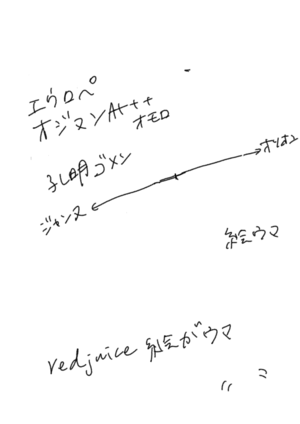 エウロペ
オジマンA+++
オモロ
孔明ゴメン
オリオン
ジャンヌ
絵ウマ
redjuice 絵がウマ
〃 =